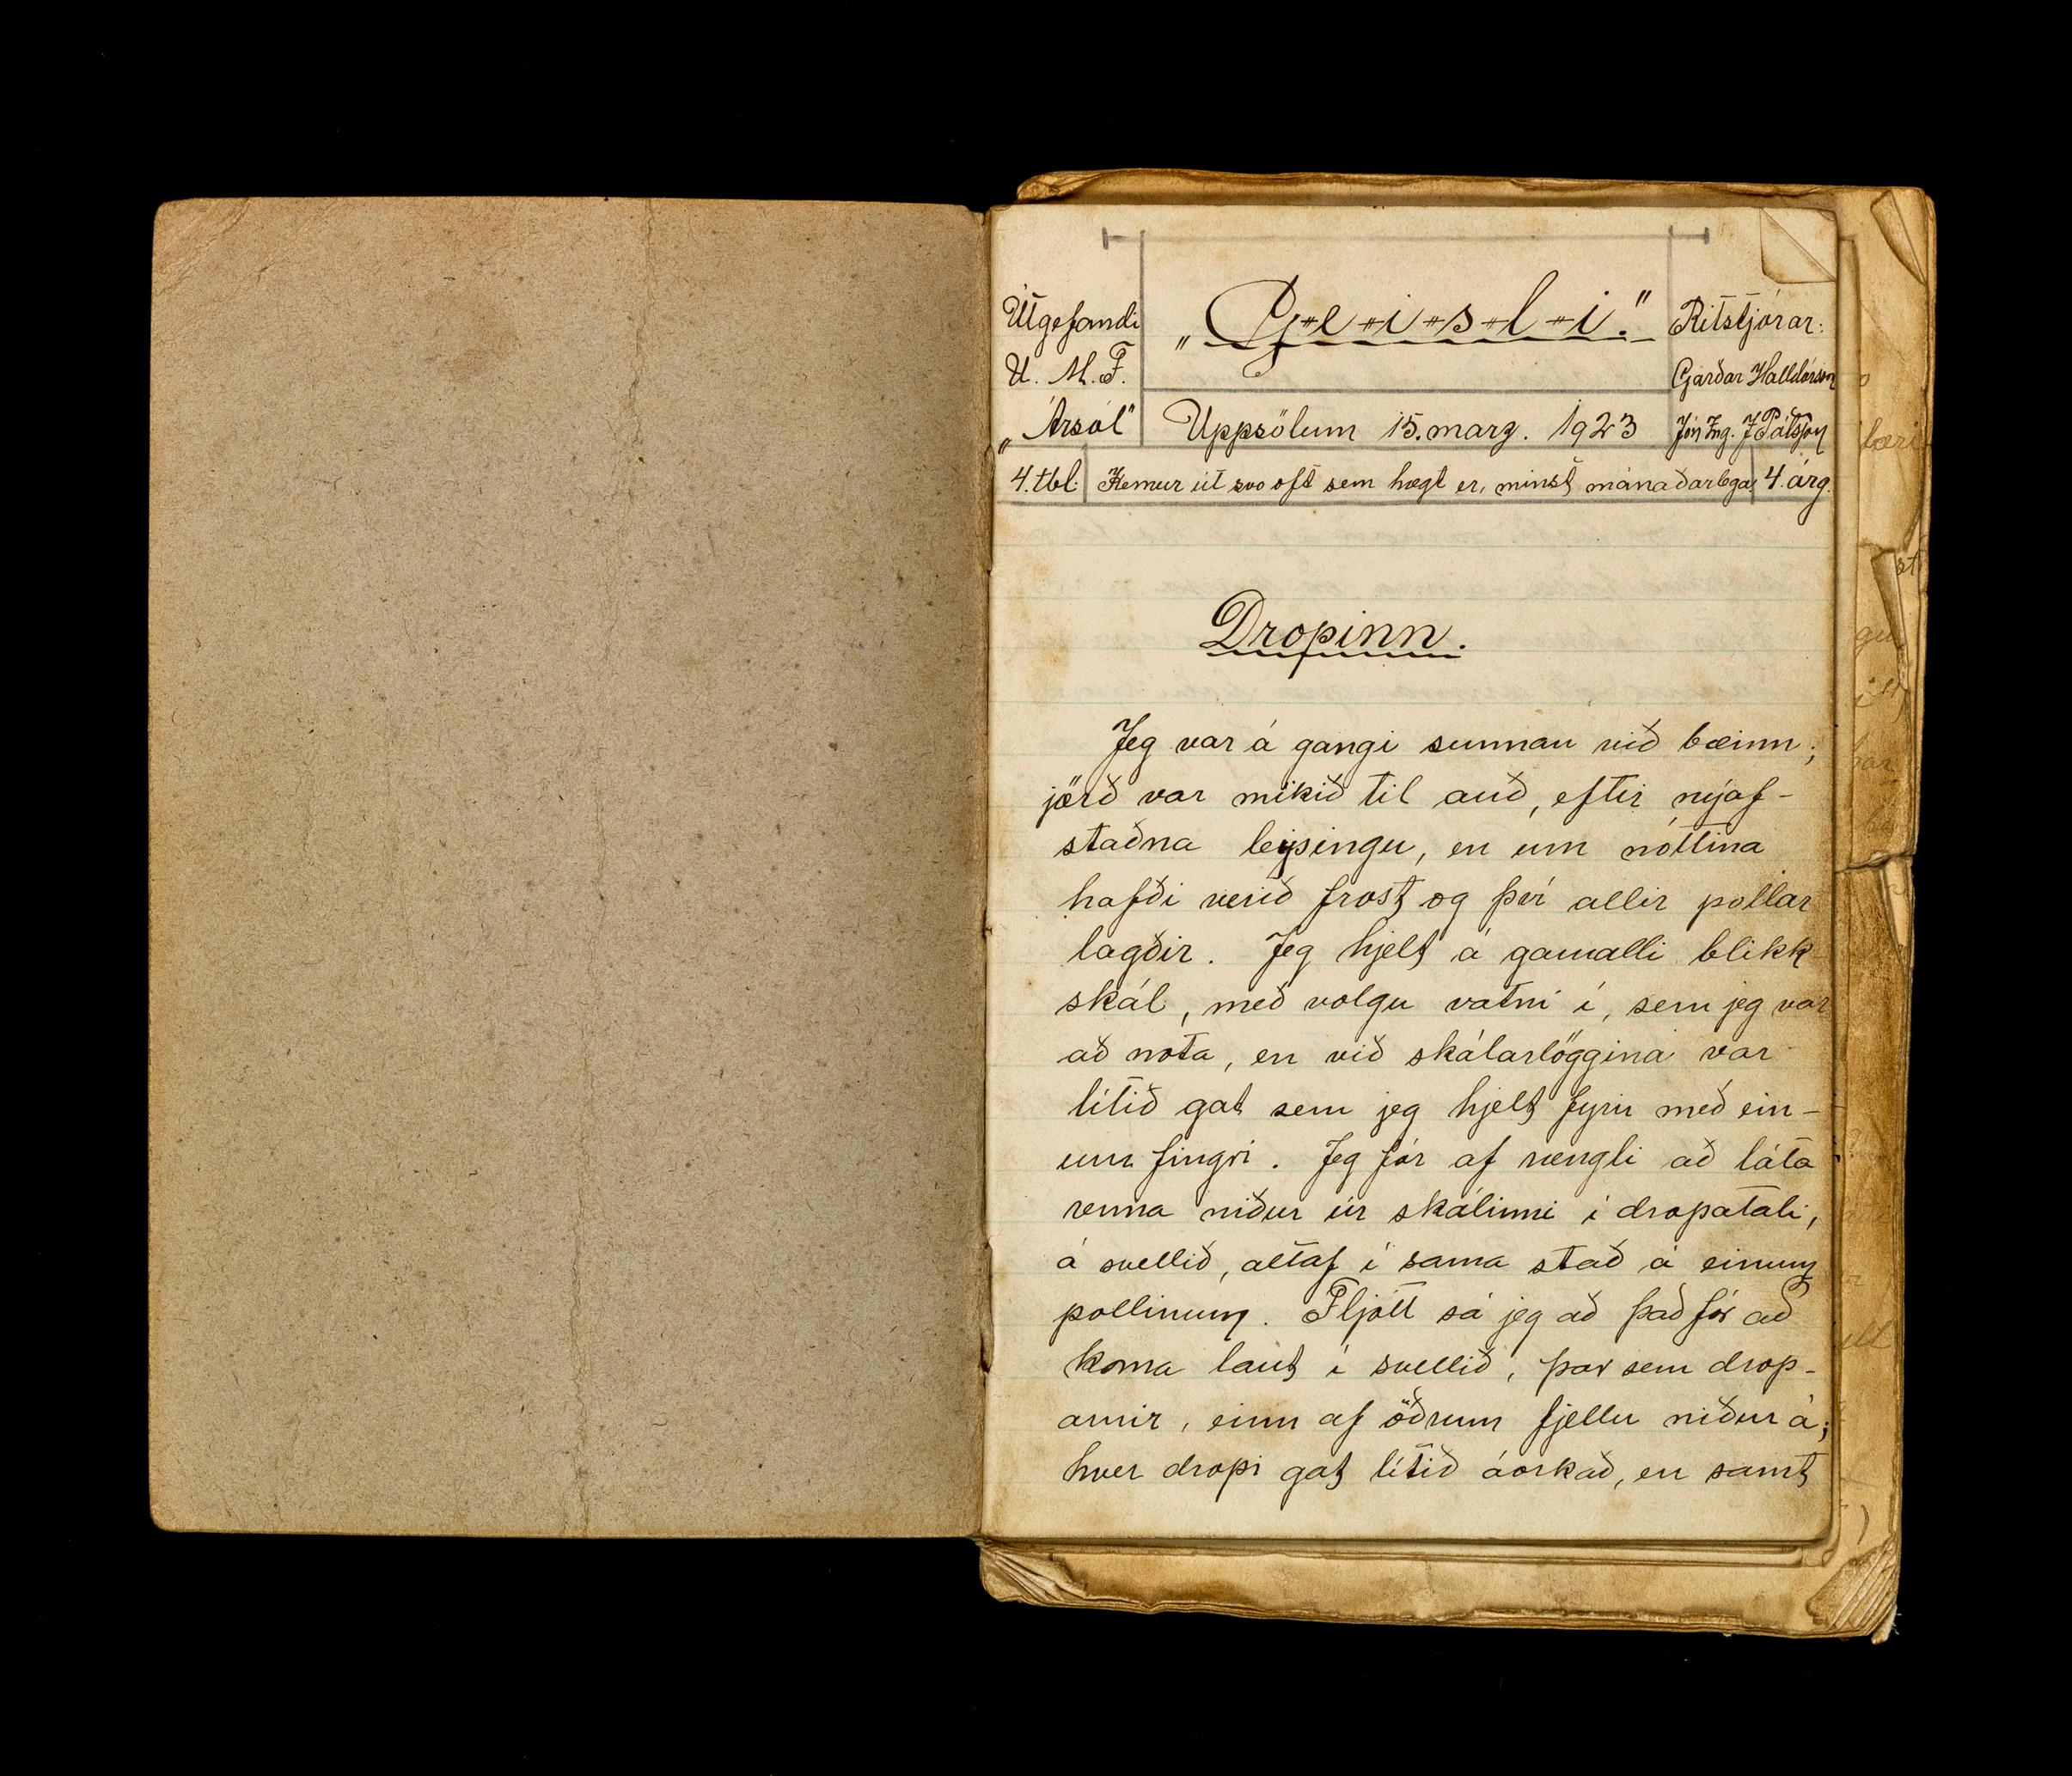 Útgefandi
U. M. F.
„Ársól"
„G=e=i=s=l=i."
Uppsölum 15. marz. 1923
Ritstjórar:
Garðar Halldórsson
Jón Ing. J Pálsson
4. tbl. Kemur út svo oft sem hægt er, minst mánaðarlega 4. árg.
Dropinn.
Jeg var á gangi sunnan við bæinn;
jörð var mikið til auð, eftir nýaf-
staðna leysingu, en um nóttina
hafði verið frost og því allir pollar
lagðir. Jeg hjelt á gamalli blikk-
skál, með volgu vatni í, sem jeg var
að nota, en við skálarlöggina var
lítið gat sem jeg hjelt fyrir með ein-
um fingri. Jeg fór af rængli að láta
renna niður úr skálinni í dropatali,
á svellið, altaf í sama stað á einum
pollinum. Fljótt sá jeg að það fór að
koma laut í svellið, þar sem drop-
arnir, einn af öðrum fjellu niður á;
hver dropi gat lítið áorkað, en samt